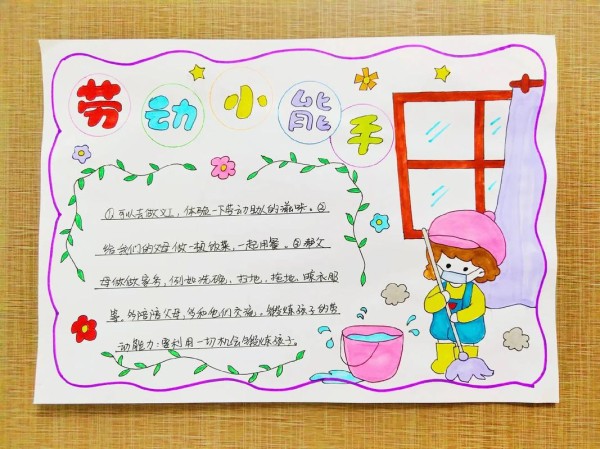 劳动小能手
①可以去做义工，体验一下劳动助人的滋味。②
给我们的父母做一顿饭菜，一起用餐。③替父
母做做家务，例如洗碗、扫地、拖地、晾衣服
等。多陪陪父母，多和他们交流。锻炼孩子的劳
动能力：要利用一切机会锻炼孩子。